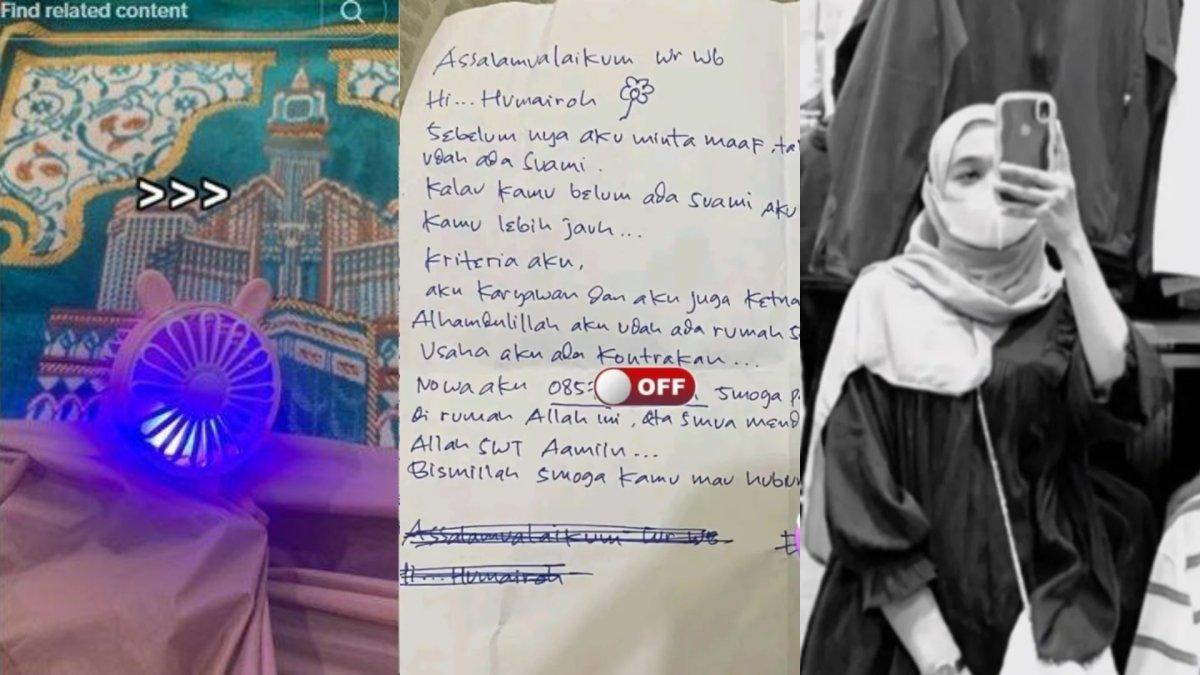 Find related content
>>>
Assalamualaikum Wr Wb
Hi... Humairoh
Sebelum nya aku minta maaf, ta
udah ada suami.
Kalau kamu belum ada suami aku
kamu lebih jauh...
Kriteria aku,
aku karyawan dan aku juga ketua
Alhamdulillah aku udah ada rumah s
Usaha aku ada kontrakan...
No wa aku 085 OFF Smoga p
Di rumah Allah ini, kita smua mend
Allah SWT Aamiin...
Bismillah smoga kamu mau hubun
Assalamualaikum Wr Wb
Hi... Humairoh